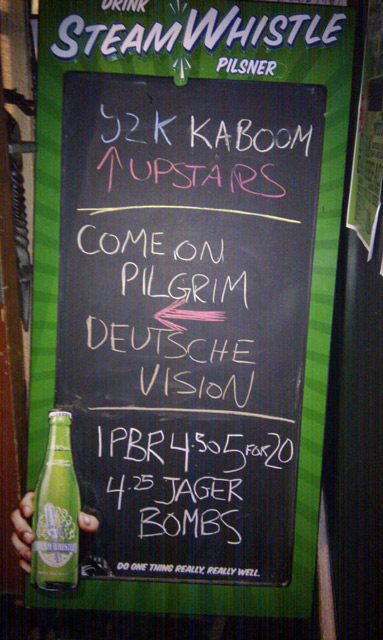 DRINK
STEAMWHISTLE
PILSNER
Y2K KABOOM
↑UPSTAIRS
COME ON
PILGRIM
←
DEUTSCHE
VISION
1 PBR 4.50 5 FOR 20
4.25 JAGER
BOMBS
STEAM WHISTLE
DO ONE THING REALLY, REALLY WELL.